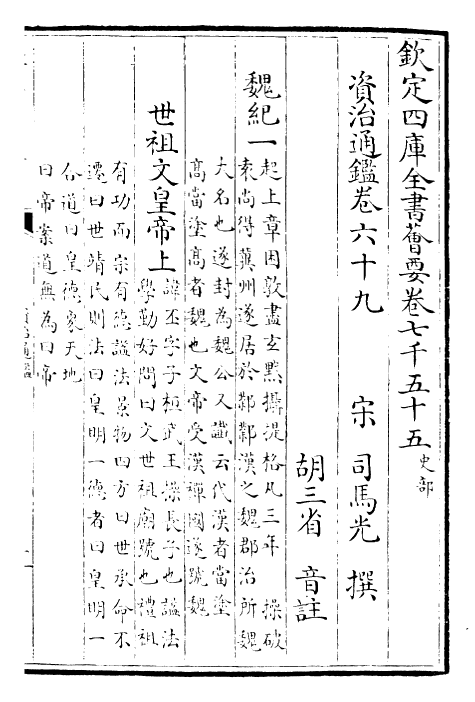 欽定四庫全書薈要卷七千五十五 史部
資治通鑑卷六十九
宋 司馬光 撰
胡三省 音註
魏紀一 起上章困敦盡玄黓攝提格凡三年 操破
袁尚得冀州遂居於鄴鄴漢之魏郡治所魏
大名也遂封為魏公又讖云代漢者當塗
高當塗高者魏也文帝受漢禪國遂號魏
世祖文皇帝上 諱丕字子桓武王操長子也諡法
學勤好問曰文世祖廟號也禮祖
有功而宗有德諡法景物四方曰世承命不
遷曰世靖民則法曰皇明一德者曰皇明一
合道曰皇德象天地
曰帝案道無為曰帝